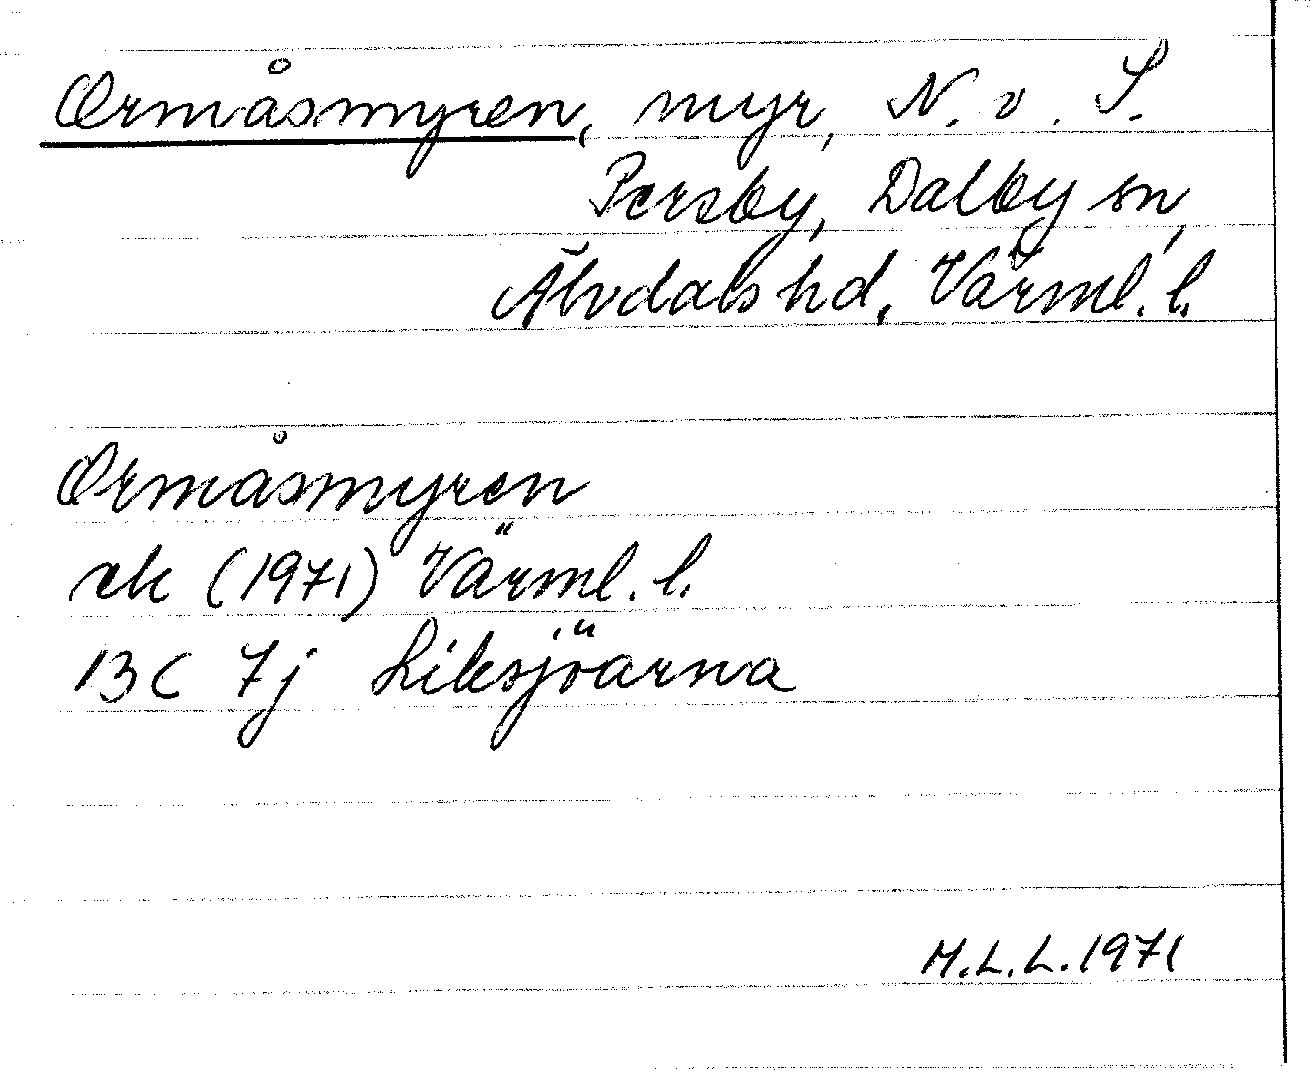 Ormåsmyren, myr, N. v. S.
Persby, Dalby sn,
Älvdals hd, Värml. l.
Ormåsmyren
ek (1971) Värml. l.
13C 7j Liksjöarna
M.L.L. 1971